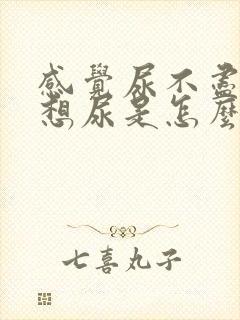 感覺尿不盡
想尿是怎麼
七喜丸子